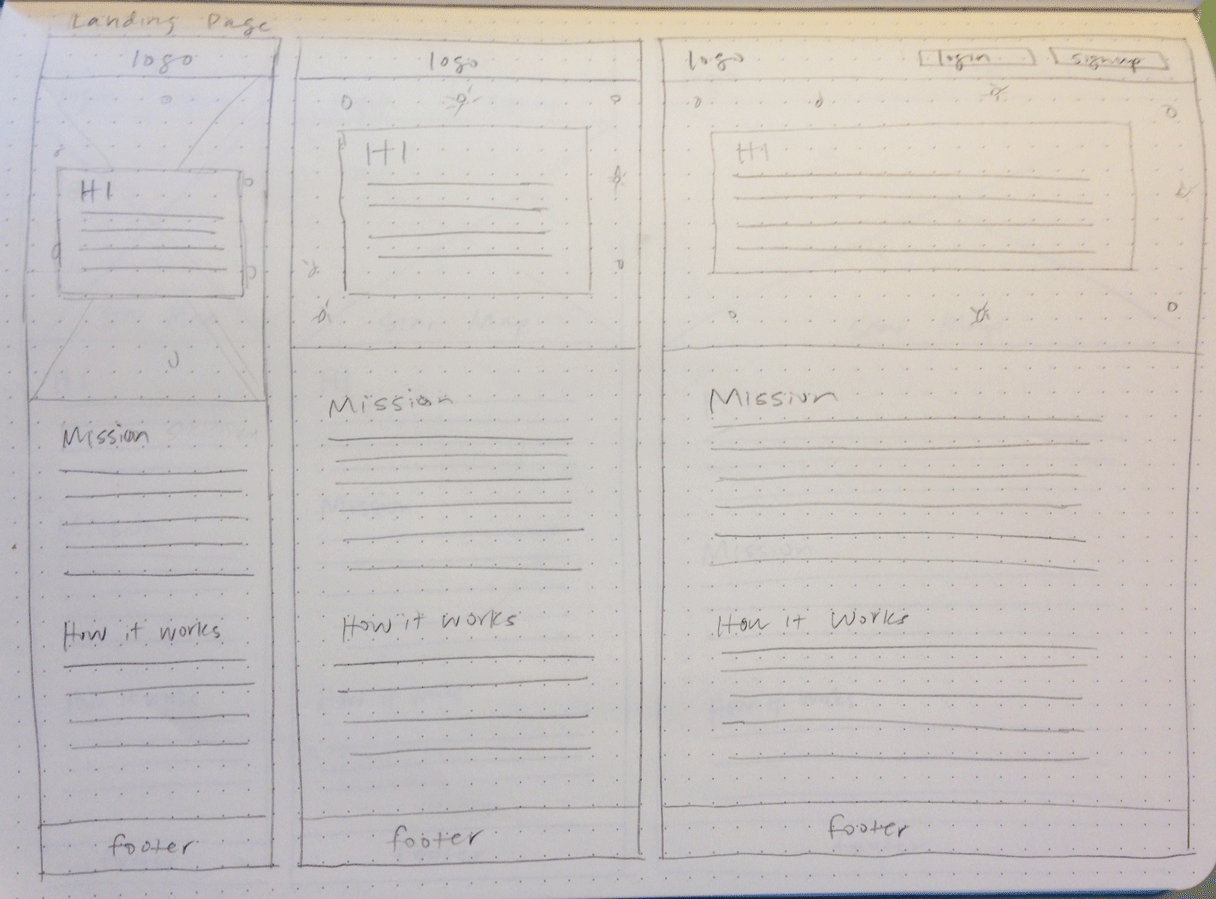 Landing Page
logo
H1
Mission
How it works
footer
logo
H1
Mission
How it works
footer
logo login signup
H1
Mission
How it Works
footer